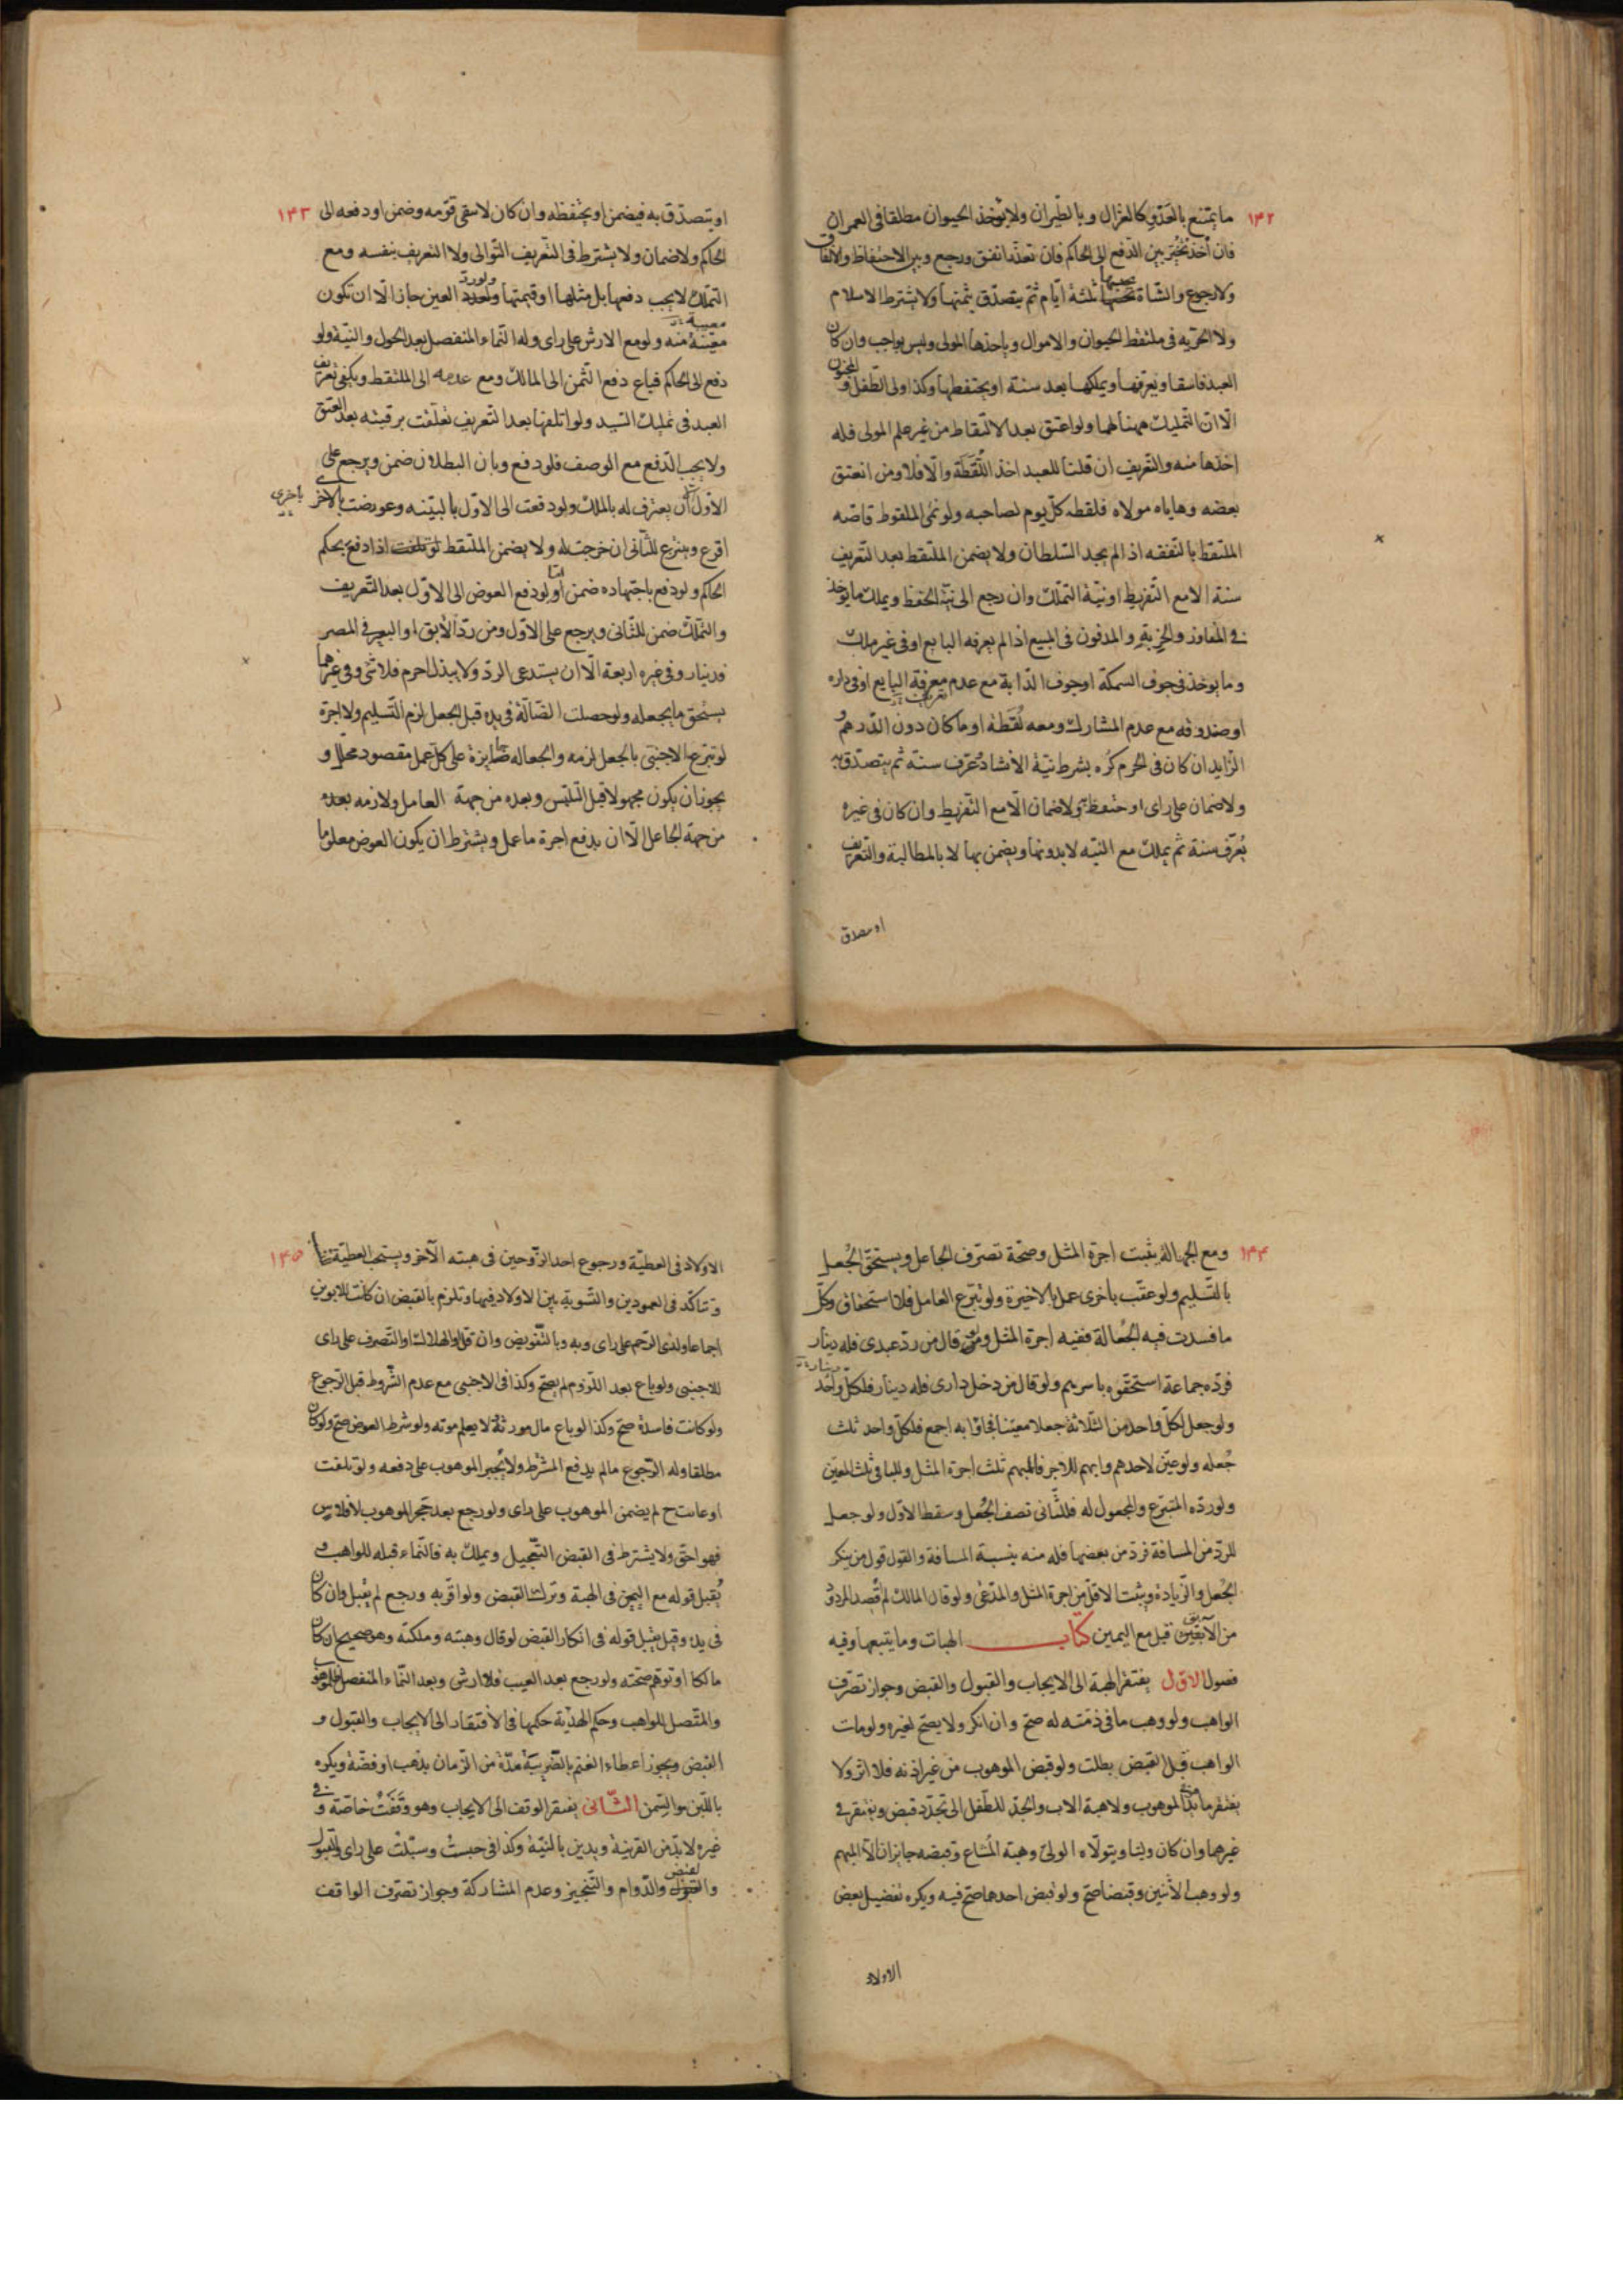 ١٤٢
ما يمتنع بالعدو كالغزال وبالطيران ولا يؤخذ الحيوان مطلقا في العمران
فان اخذ تخير بين الدفع الى الحاكم فان تعذر انفق ورجع وبين الاحتفاظ والانفاق
ولا رجوع والشاة يحبسها ثلثة ايام ثم يتصدق بثمنها ولا يشترط الاسلام
ولا الحرية في ملتقط الحيوان والاموال وياخذها المولى وليس بواجب وان كان
العبد فاسقا ويعرفها ويملكها بعد سنة او يحتفظها وكذا ولى الطفل والمجنون
الا ان التمليك ههنا لهما ولو اعتق بعد الالتقاط من غير علم المولى فله
اخذها منه والتعريف ان قلنا للعبد اخذ اللُّقَطَة والا فلا ومن انعتق
بعضه وهاياه مولاه فلقطة كل يوم لصاحبه ولو نمى الملقوط قاصه
الملتقط بالنفقه اذا لم يجد السلطان ولا يضمن الملتقط بعد التعريف
سنة الا مع التفريط او نية التملك وان رجع الى نية الحفظ ويملك ما يوخذ
في المفاوز والخربة والمدفون في المبيع اذا لم يعرفه البايع او في غير ملك
وما يوخذ في جوف السمكة او جوف الدابة مع عدم معرفة البايع او في داره
او صندوقه مع عدم المشارك ومعه لُقَطَة او ما كان دون الدرهم و
الزايد ان كان في الحرم كُره بشرط نية الانشاد وعرّف سنة ثم يتصدق به
ولا ضمان على راى او حتفظ ولا ضمان الا مع التفريط وان كان في غيره
يُعرّف سنة ثم يملك مع النيه لا بدونها ويضمن بها لا بالمطالبة والتعريف
او يتصدق
١٤٣
او يتصدق به فيضمن او يحتفظه وان كان لا يبقى قومه وضمن او دفعه الى
الحاكم ولا ضمان ولا يشترط في التعريف التوالى ولا التعريف بنفسه ومع
التملك لا يجب دفعها بل مثلها او قيمتها ولو رد العين جاز الا ان تكون
معيبة منه ولو مع الارش على راى وله النماء المنفصل بعد الحول والنية ولو
دفع الى الحاكم فباع دفع الثمن الى المالك ومع عدمه الى الملتقط ويكفى تعريف
العبد في تمليك السيد ولو اتلفها بعد التعريف تعلقت برقبته بعد العتق
ولا يجب الدفع مع الوصف فلو دفع وبان البطلان ضمن ويرجع على
الاول الا ان يعترف له بالملك ولو دفعت الى الاول بالبينه وعورضت باخرى
اقرع وينتزع للثانى ان خرجت له ولا يضمن الملتقط اذا دفع بحكم
الحاكم ولو دفع باجتهاده ضمن اما لو دفع العوض الى الاول بعد التعريف
والتملك ضمن للثانى ويرجع على الاول ومن رد الابق او البعير في المصر
فدينار وفي غيره اربعة الا ان يستدعى الرد ولا يبذل اجرة فلا شى وفي غيرهما
يستحق ما يجعله ولو حصلت الضالة في يده قبل الجعل لزم التسليم ولا اجرة
لو تبرع الاجنبى بالجعل لزمه والجعاله جايزة على كل عمل مقصود محلل و
يجوز ان يكون مجهولا قبل التلبس وبعده من جهة العامل ولازمه بعده
من جهة الجاعل الا ان يدفع اجرة ما عمل ويشترط ان يكون العوض معلوما
١٤٤
ومع الجهالة يثبت اجرة المثل وصحة تصرف الجاعل ويستحق الجُعل
بالتسليم ولو عقب باخرى عمل بالاخيرة ولو تبرع العامل فلا استحقاق وكل
ما فسدت فيه الجعالة ففيه اجرة المثل ولو قال من رد عبدى فله دينار
فرده جماعة استحقوه باسرهم ولو قال من دخل دارى فله دينار فلكل واحد دينار
ولو جعل لكل واحد من الثلاثة جعلا معينا فجاؤا به اجمع فلكل واحد ثلث
جُعله ولو عين لاحدهم وابهم للاخر فللمبهم ثلث اجرة المثل وللباقى ثلث المعين
ولو رده المتبرع والمجعول له فللثانى نصف الجُعل وسقط الاول ولو جعل
للرد من المسافة فرد من بعضها فله منه بنسبة المسافة والقول قول من ينكر
الجُعل والزيادة ويثبت الاقل من اجرة المثل والمدعى ولو قال المالك لم اقصد المردود
من الابقين قبل مع اليمين كتاب الهبات وما يتبعها وفيه
فصول الاول يفتقر الهبة الى الايجاب والقبول والقبض وجواز تصرف
الواهب ولو وهب ما في ذمته له صح وان انكر ولا يصح لغيره ولو مات
الواهب قبل القبض بطلت ولو قبض الموهوب من غير اذنه فلا اثر ولا
يفتقر ما بيد الموهوب ولا هبة الاب والجد للطفل الى تجدد قبض ويفتقر في
غيرهما وان كان وليا ويتولاه الولى وهبة المشاع وقبضه جايزان لا المبهم
ولو وهب لاثنين وقبضا صح ولو قبض احدهما صح فيه ويكره تفضيل بعض
الاولاد
١٤٥
الاولاد في العطية ورجوع احد الزوجين في هبته الاخر ويستحب العطية
وتتاكد في العمودين والتسوية بين الاولاد فيها وتلزم بالقبض ان كانت للابوين
اجماعا ولذى الرحم على راى وبه وبالتعويض وان قل والهلاك او التصرف على راى
للاجنبى ولو باع بعد اللزوم لم يصح وكذا في الاجنبى مع عدم الشروط قبل الرجوع
ولو كانت فاسدة صح وكذا لو باع مال مورثه لا يعلم موته ولو شرط العوض صح ولو كان
مطلقا وله الرجوع ما لم يدفع المشترط ولا يُجبر الموهوب على دفعه ولو تلفت
او عابت ح لم يضمن الموهوب على راى ولو رجع بعد حجر الموهوب لافلاس
فهو احق ولا يشترط في القبض التعجيل ويملك به فالنماء قبله للواهب و
يُقبل قوله مع اليمين في الهبة وترك القبض ولو اقر به ورجع لم يقبل وان كان
في يده وقيل يقبل قوله في انكار القبض لو قال وهبته وملكته وهو صحيح ان كان
مالكا او توهم صحته ولو رجع بعد العيب فلا ارش وبعد النماء المنفصل فللموهوب
والمتصل للواهب وحكم الهدية حكمها في الافتقار الى الايجاب والقبول و
القبض ويجوز اعطاء الغنم بالضريبة مدة من الزمان بذهب او فضة ويكره
باللبن والسمن الثانى يفتقر الوقف الى الايجاب وهو وقفتُ خاصة و في
غيره لا بد من القرينة ويدين بالنية وكذا في حبست وسبلت على راى والقبول
والقبض والدوام والتنجيز وعدم المشاركة وجواز تصرف الواقف